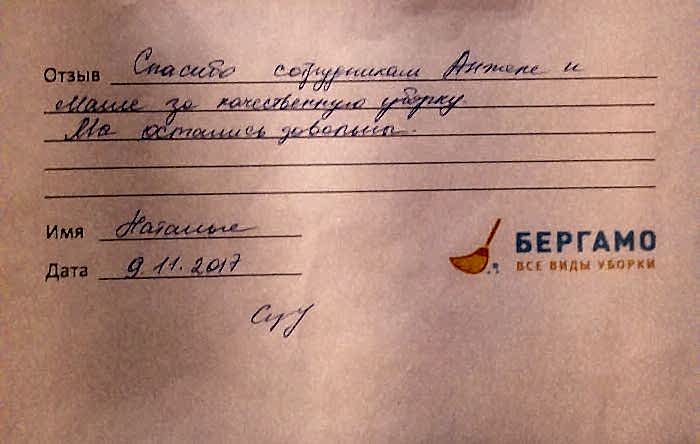 Отзыв Спасибо сотрудникам Анжеле и
Маше за качественную уборку.
Мы остались довольны.
Имя Наталья
Дата 9.11.2017
БЕРГАМО
ВСЕ ВИДЫ УБОРКИ